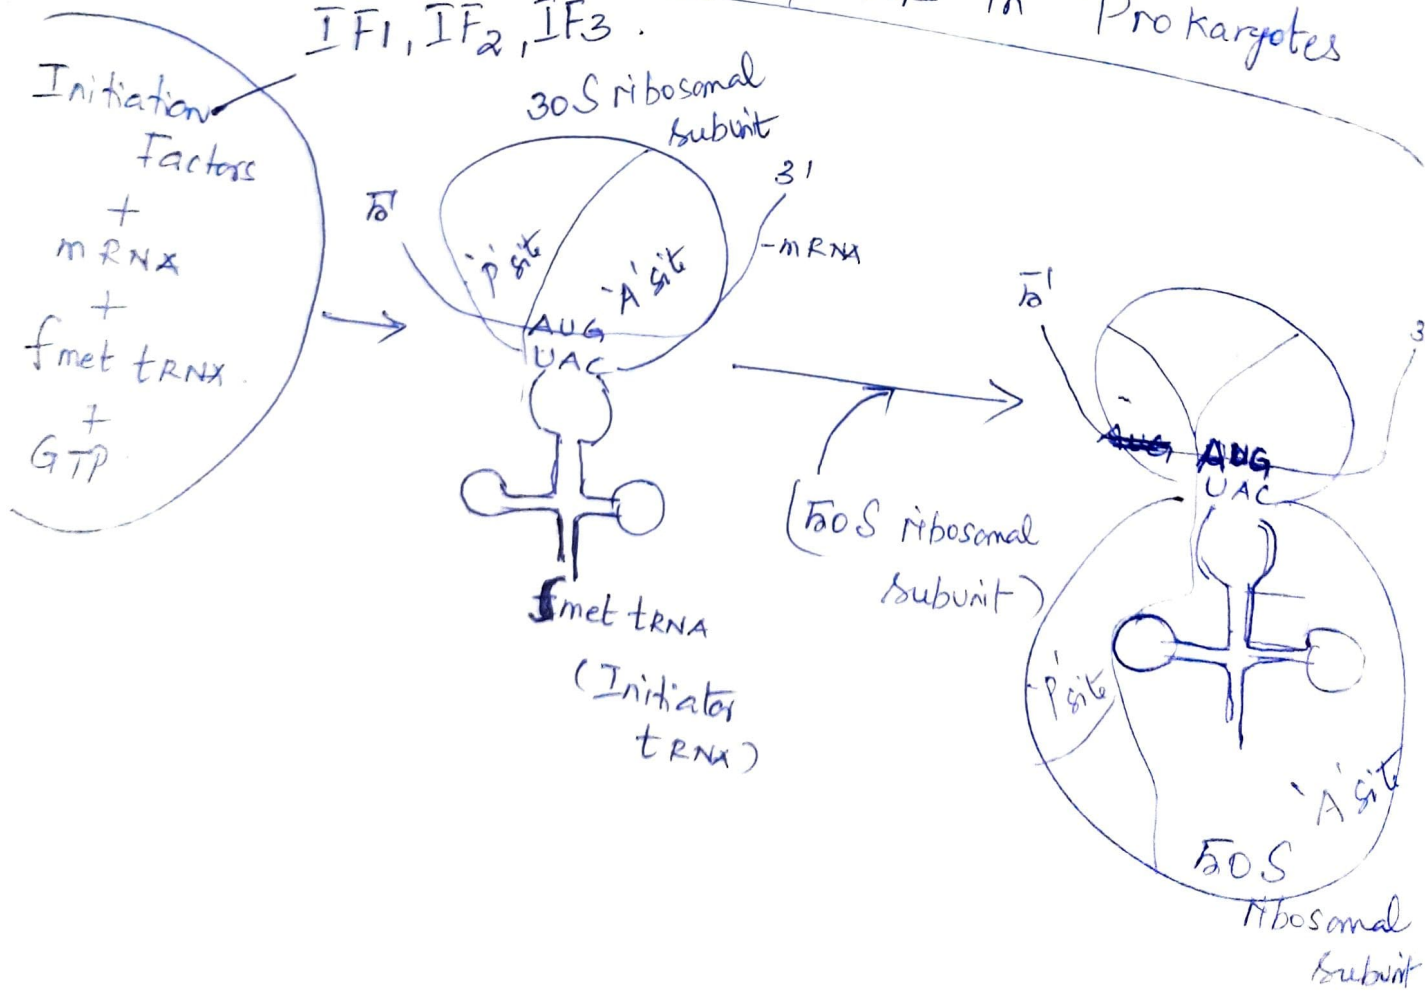 in Prokaryotes
IF1, IF2, IF3.
Initiation
Factors
+
mRNA
+
fmet tRNA
+
GTP
30S ribosomal
subunit
5'
3'
'P' site
'A' site
-mRNA
AUG
UAC
fmet tRNA
(Initiator
tRNA)
(50S ribosomal
subunit)
5'
3
AUG
AUG
UAC
'P' site
'A' site
50S
ribosomal
subunit